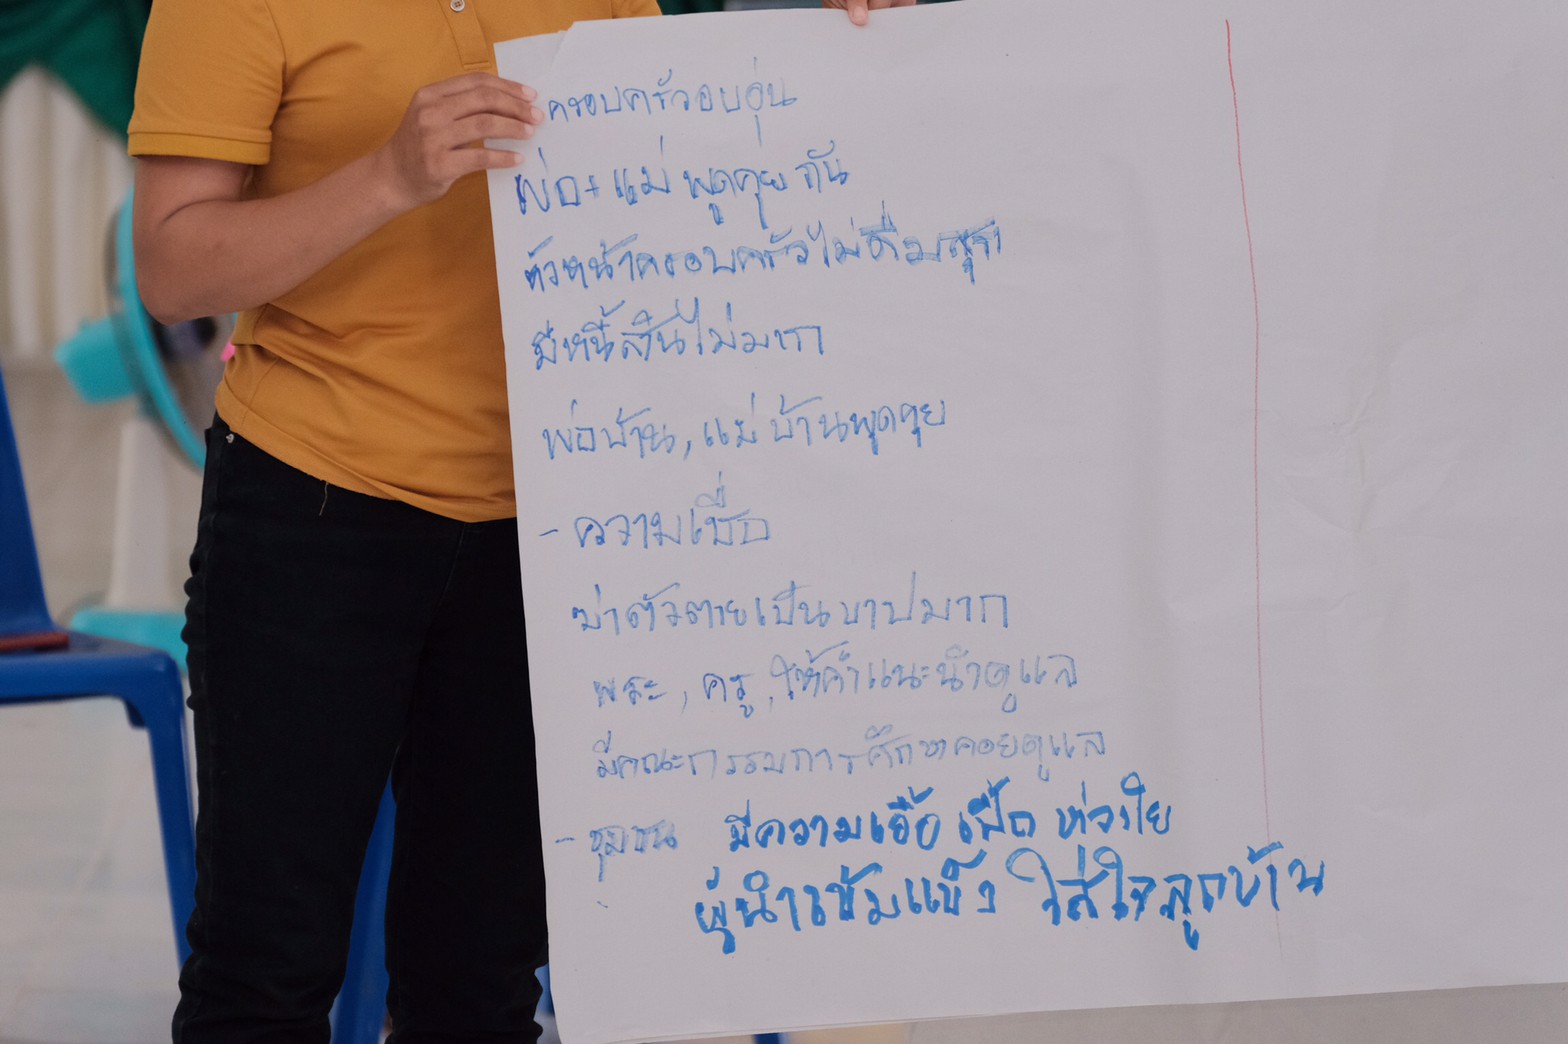 ครอบครัวอบอุ่น
พ่อ+แม่ พูดคุยกัน
หัวหน้าครอบครัวไม่ดื่มสุรา
มีหนี้สินไม่มาก
พ่อบ้าน, แม่บ้านพูดคุย
- ความเชื่อ
ฆ่าตัวตายเป็นบาปมาก
พระ, ครู, ให้คำแนะนำดูแล
มีคณะกรรมการคอยดูแล
- ชุมชน มีความเอื้อเฟื้อ ห่วงใย
ผู้นำเข้มแข็ง ใส่ใจลูกบ้าน